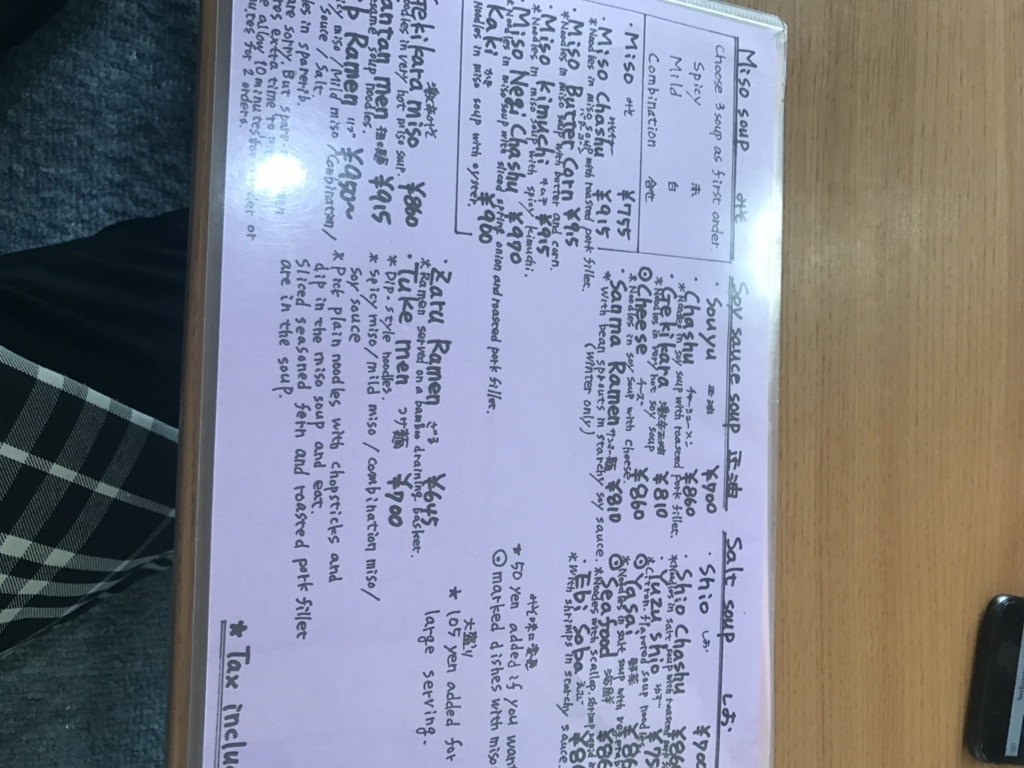 Miso soup みそ
Choose 3 soup as first order.
Spicy 赤
Mild 白
Combination 合せ
・Miso みそ ¥755
・Miso Chashu ¥915
*Noodles in miso soup and roasted pork fillet.
・Miso Butter Corn ¥915
*Noodles in miso soup with butter and corn.
・Miso kimuchi キムチ ¥915
*Noodles in miso soup with spicy kimuchi.
・Miso Negi Chashu ¥970
*Noodles in miso soup with sliced spring onion and roasted pork fillet.
Kaki カキ ¥900
noodles in miso soup with oyster.
Gekikara miso 激辛みそ ¥860
noodles in very hot miso soup.
antan men ¥915
soup noodles.
b Ramen ¥950~
miso / Mild miso / Combination /
Souce / Salt
in sparerib.
are sorry. But
extra time to
allow 10 minutes
for 2 orders.
Soy sauce soup 正油
・Souyu 正油 ¥700
・Chashu チャーシュー ¥860
*Noodles in soy soup with roasted pork fillet.
・Gekikara 激辛正油 ¥810
*Noodles in very hot soy soup
⊙Cheese チーズ ¥860
*Noodles in soy soup with cheese.
・Sanma Ramen サンマー麺 ¥810
*With bean sprouts in starchy soy sauce.
(Winter only)
・Zaru Ramen ざる ¥645
*Ramen served on a bamboo draining basket.
・Tuke men つけ麺 ¥700
*Dip-style noodles.
*spicy miso / mild miso / combination miso /
soy souce
*Pick plain noodles with chopsticks and
dip in the miso soup and eat.
Sliced seasoned
and roasted pork fillet
are in the soup.
Salt soup しお
・Shio しお ¥700
・Shio Chashu
*Noodles in salt soup with roasted
・Yuzu shio
flavored soup
⊙Yasai 野菜
*Noodles in salt soup with
⊙Seafood 海鮮
*Noodles with scallop, shrimp,
・Ebi Soba
*With shrimps in starchy sauce.
みそ味に変更
*50 yen added if you want
⊙marked dishes with miso
大盛り
*105 yen added for
large serving.
*Tax